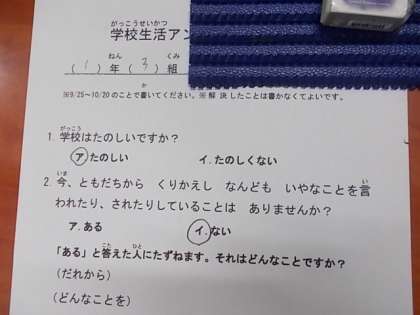 がっこうせいかつ
学校生活アン
ねん くみ
(1)年(3)組
か
※9/25~10/20のことで書いてください。※解決したことは書かなくてよいです。
がっこう
1. 学校はたのしいですか？
ア.たのしい イ.たのしくない
いま い
2. 今、ともだちから くりかえし なんども いやなことを言
われたり、されたりしていることは ありませんか？
ア.ある イ.ない
こた ひと
「ある」と答えた人にたずねます。それはどんなことですか？
(だれから)
(どんなことを)